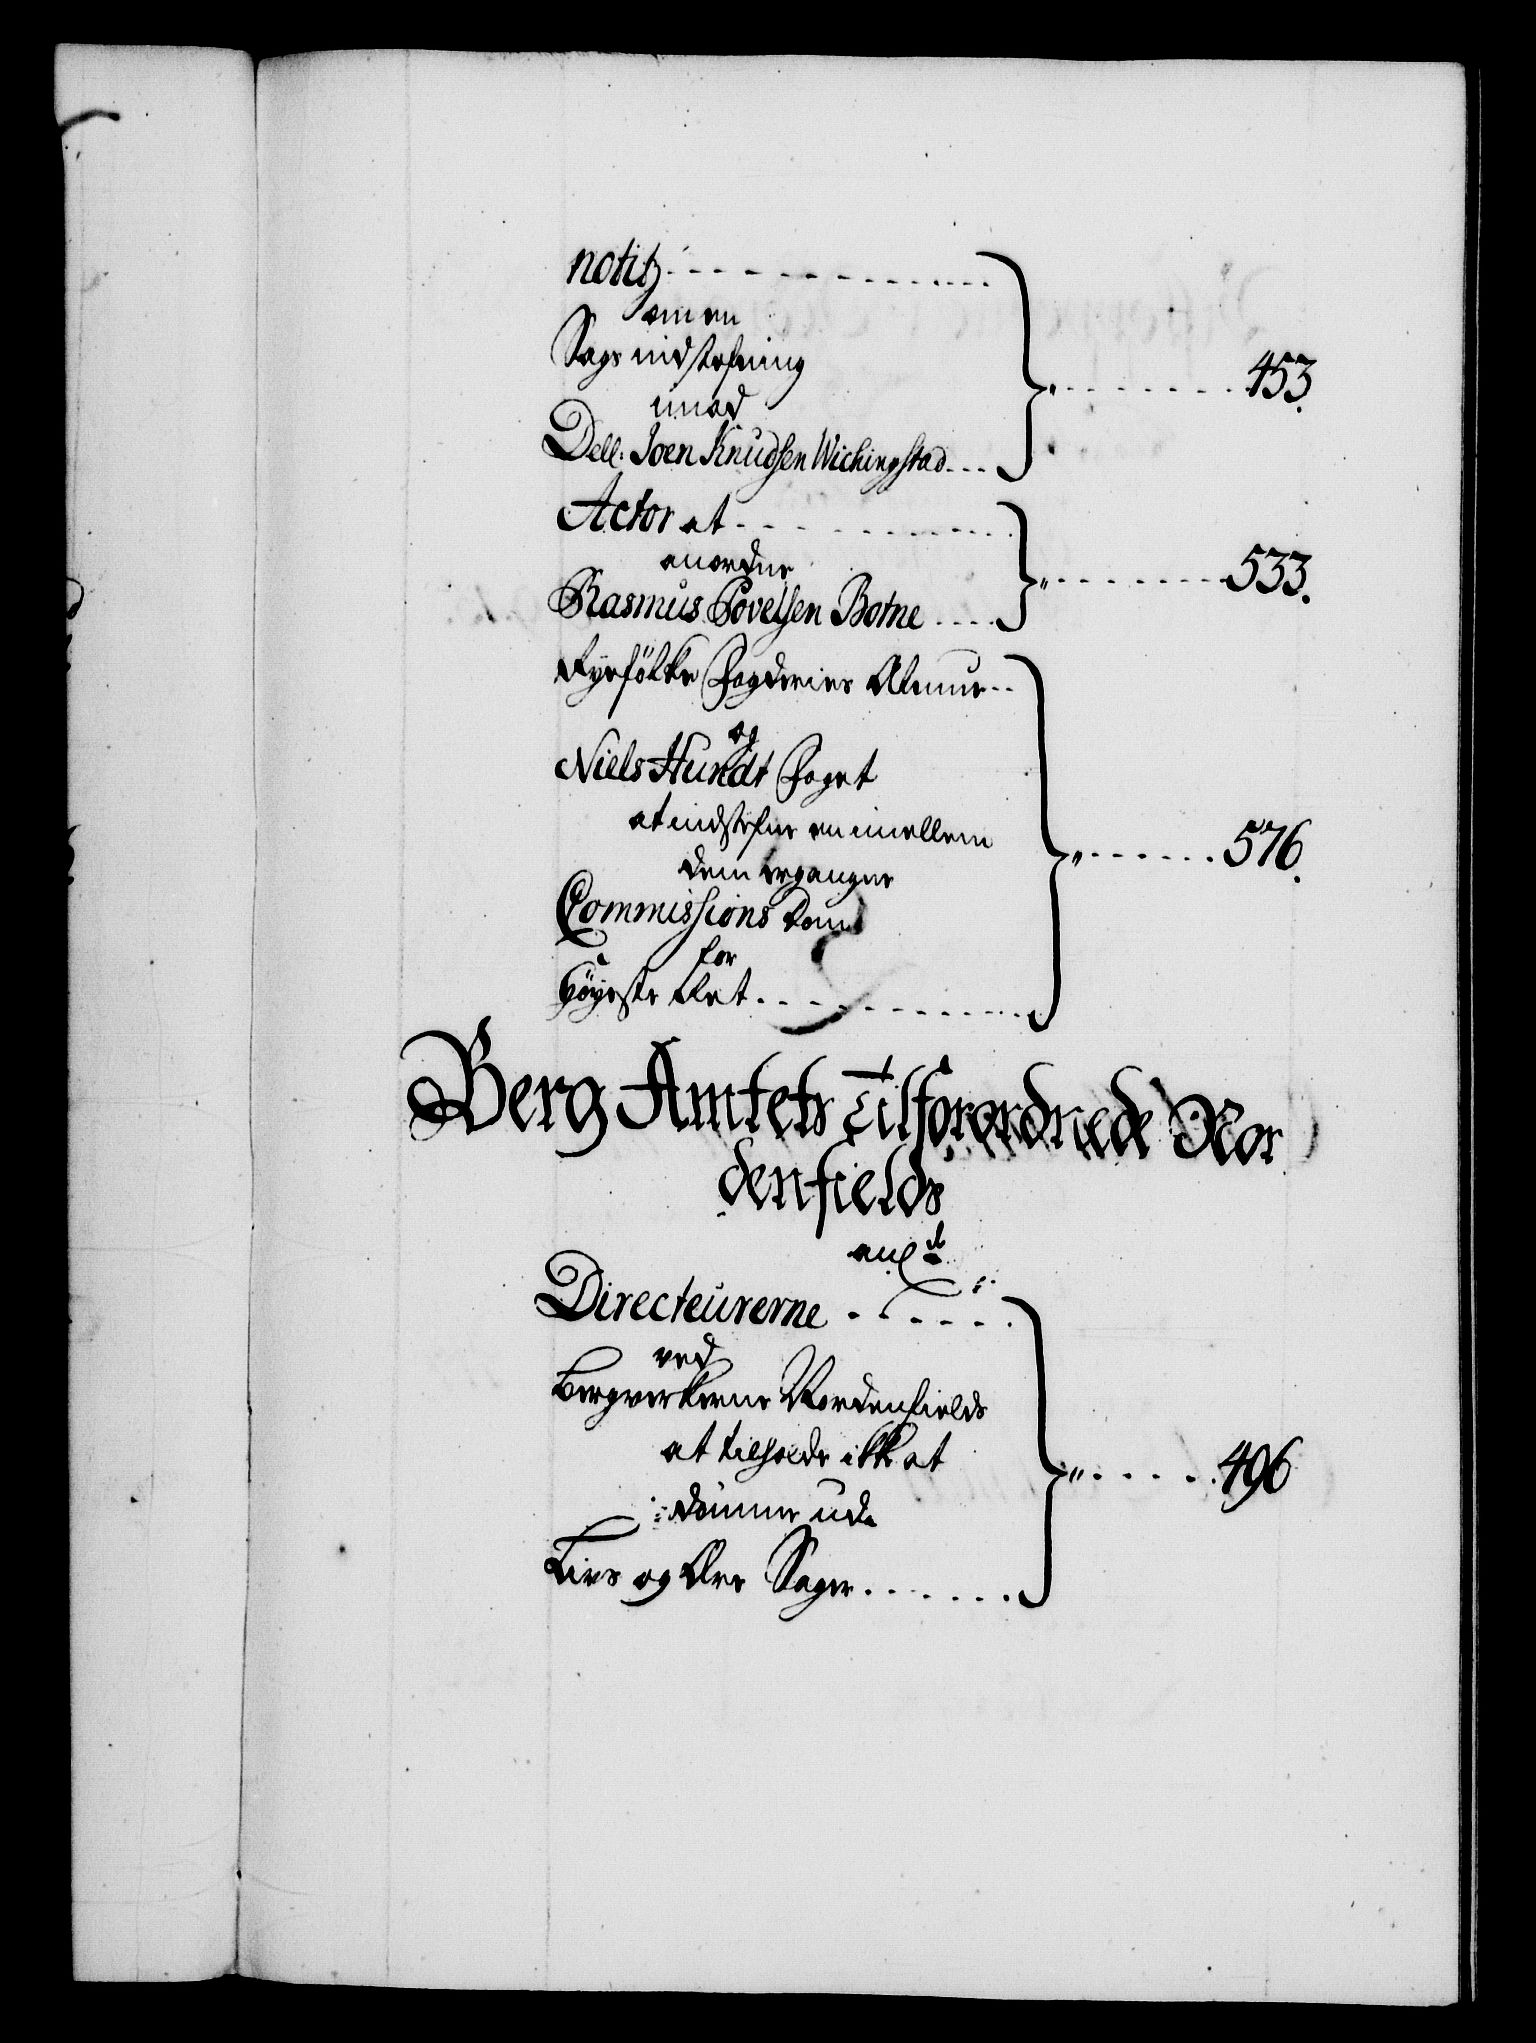 notitz
om en
Sags indstefning
imod
Dell. Joen Knudsen Wichingstad 453.
Actor at
anordne
Rasmus Povelsen Botne 533.
Fyrfölke Fogderies Almue
og
Niels Hundt Foget
at indstefne en imellem
dem ergangne
Commissions Dom
for
Höyeste Ret 576.
Berg Amtets Tilforordnede Nor
denfields
Directeurerne
ved
Bergverkerne Nordenfields
at tilholde ikke at
dömme udi
Livs og Ære Sager 496